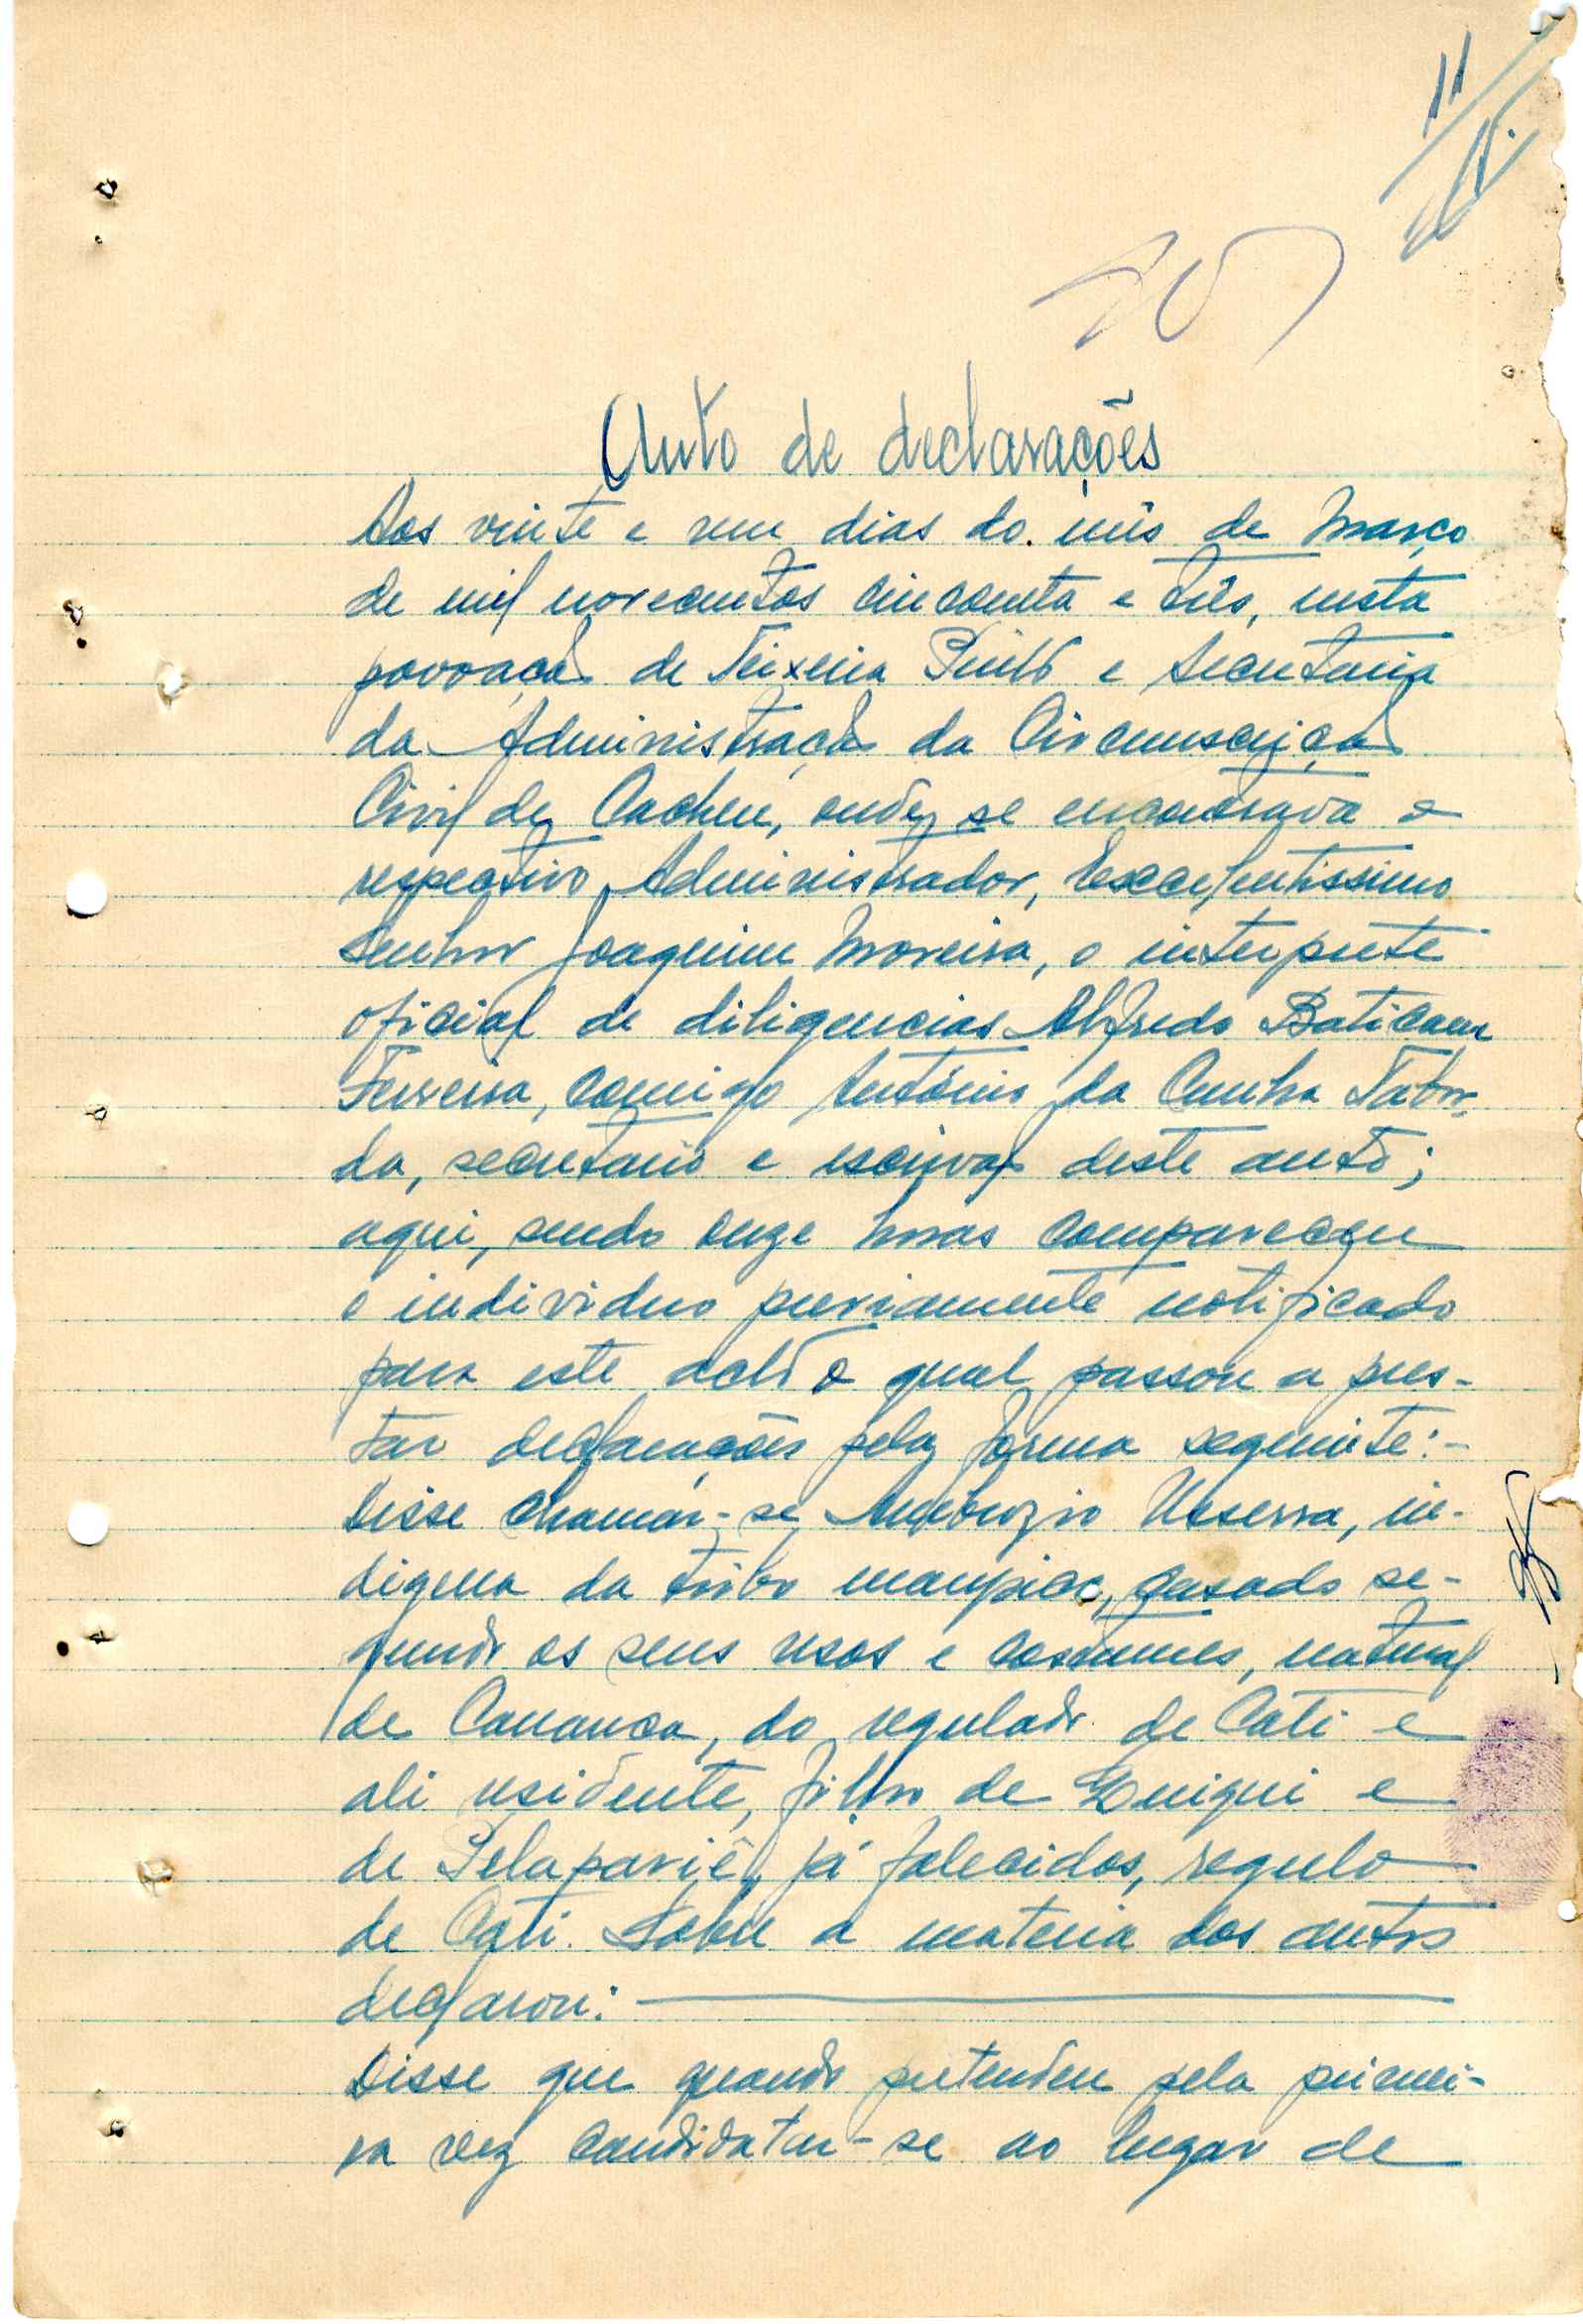 11
Auto de declarações
Aos vinte e um dias do mês de Março
de mil novecentos cincoenta e três, nesta
povoação de Teixeira Pinto e Secretaria
da Administração da Circunscrição
Civil de Cacheu, onde se encontrava o
respectivo Administrador, Excelentissimo
Senhor Joaquim Moreira, o interprete
oficial de diligencias Alfredo Baticam
Ferreira, comigo António da Cunha Tabor-
da, secretario e escrivão deste auto;
aqui, sendo onze horas compareceu
o individuo previamente notificado
para este acto o qual passou a pres-
tar declarações pela forma seguinte:-
Disse chamar-se Ambrozio Usserra, in-
digena da tribo manjaca, casado se-
gundo os seus usos e costumes, natural
de Cananca, do regulado de Cati e
ali residente, filho de e
de Pelapariê, já falecidos, regulo
de Cati. Sobre a materia dos autos
declarou:
Disse que quando pretendeu pela primei-
ra vez candidatar-se ao lugar de